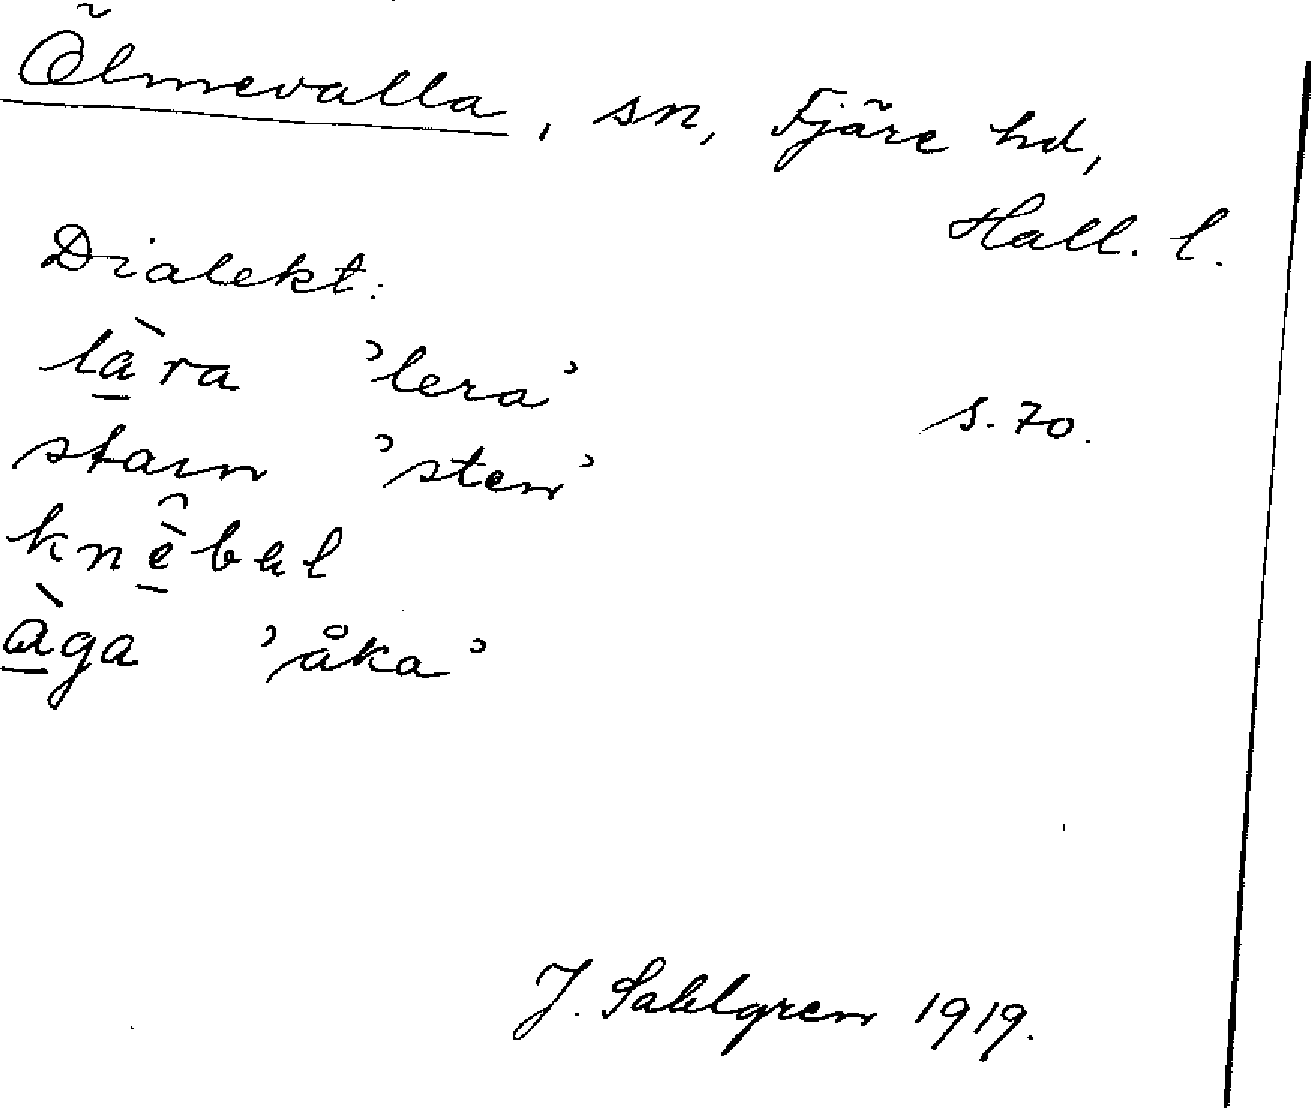 Ölmevalla, sn, Fjäre hd,
Hall. l.
Dialekt:
là̱ra 'lera'
s. 70.
stain 'sten'
knè̱̂bəl
à̱ga 'åka'
J. Sahlgren 1919.